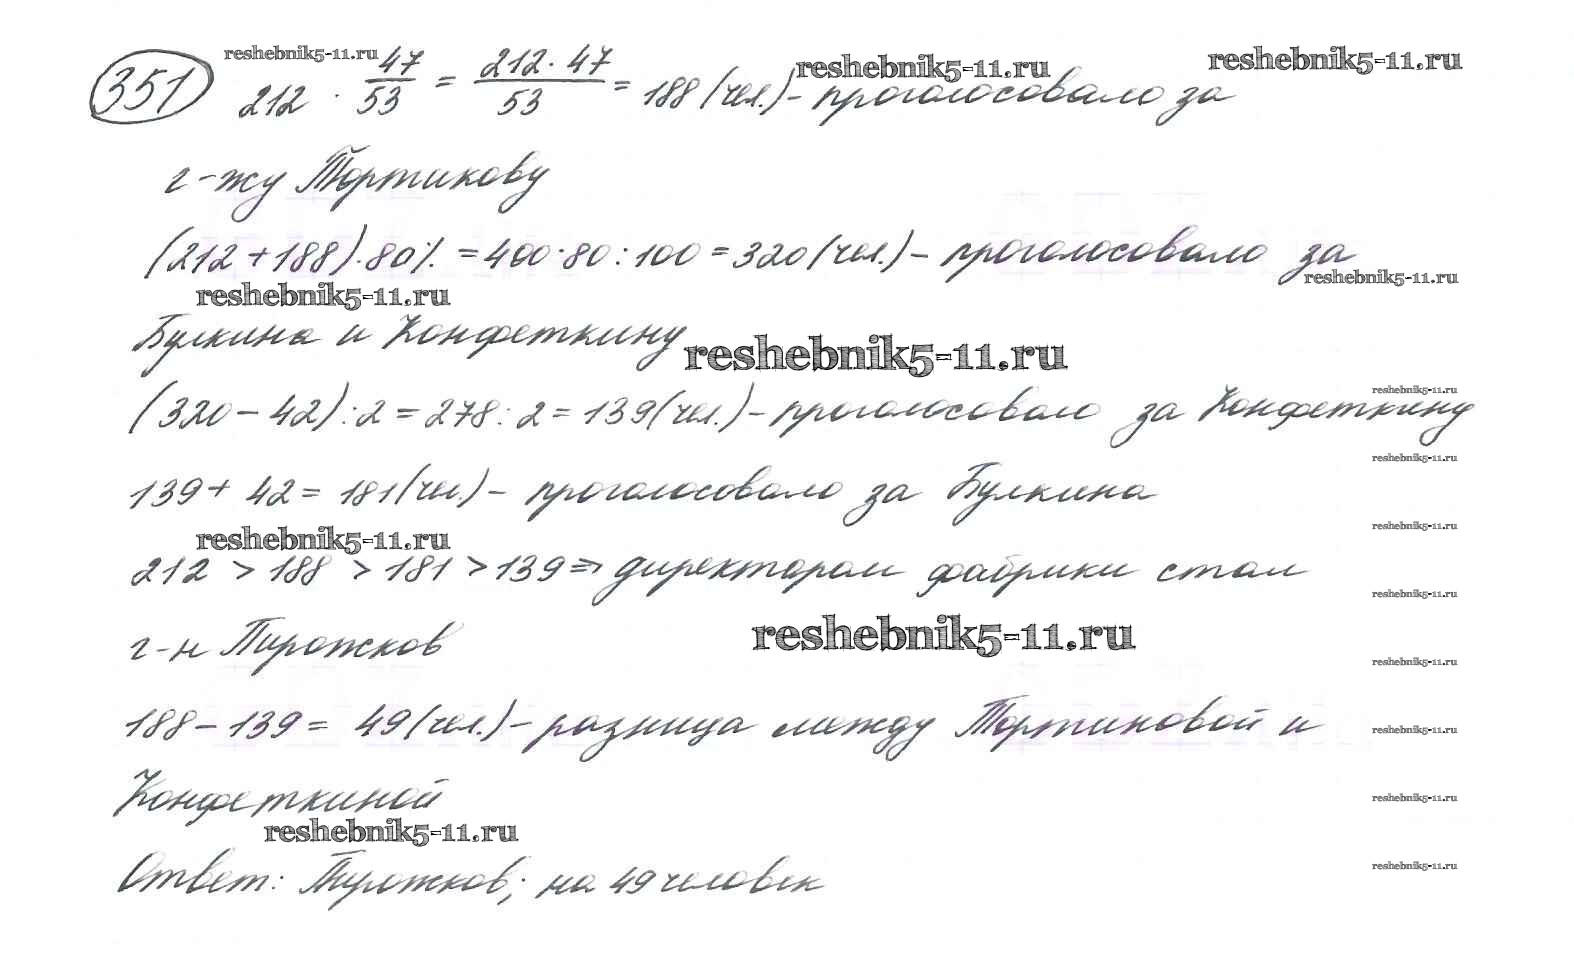 reshebnik5-11.ru reshebnik5-11.ru reshebnik5-11.ru
351 212 · 47/53 = 212 · 47/53 = 188 (чел.) - проголосовало за
г-жу Тортикову
(212 + 188) · 80% = 400 · 80 : 100 = 320 (чел.) - проголосовало за
reshebnik5-11.ru reshebnik5-11.ru
Булкина и Конфеткину reshebnik5-11.ru
reshebnik5-11.ru
(320 - 42) : 2 = 278 : 2 = 139 (чел.) - проголосовало за Конфеткину
reshebnik5-11.ru
139 + 42 = 181 (чел.) - проголосовало за Булкина
reshebnik5-11.ru reshebnik5-11.ru
212 > 188 > 181 > 139 => директором фабрики стал
reshebnik5-11.ru
г-н Пирожков reshebnik5-11.ru
reshebnik5-11.ru
188 - 139 = 49 (чел.) - разница между Тортиковой и
reshebnik5-11.ru
Конфеткиной reshebnik5-11.ru
reshebnik5-11.ru
reshebnik5-11.ru
Ответ: Пирожков; на 49 человек